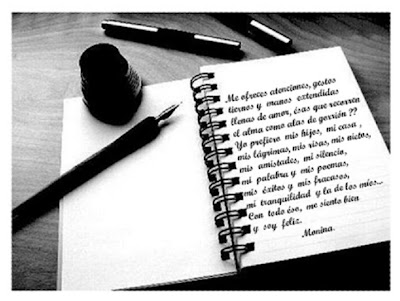 Me ofreces atenciones, gestos
tiernos y manos extendidas
llenas de amor, ésas que recorren
el alma como alas de gorrión ??
Yo prefiero mis hijos, mi casa ,
mis lágrimas, mis risas, mis nietos,
mis amistades, mi silencio,
mi palabra y mis poemas,
mis éxitos y mis fracasos,
mi tranquilidad y la de los míos...
Con todo éso, me siento bien
y soy feliz.
Monina.